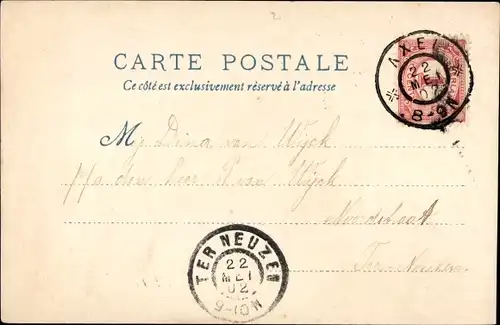 CARTE POSTALE
Ce côté est exclusivement réservé à l'adresse
AXEL
22
MEI
02
8-9N
M. Dina van Wijck
p/a den heer P van Wijck
Noordstraat
Ter Neuzen
TER NEUZEN
22
MEI
02
9-10N